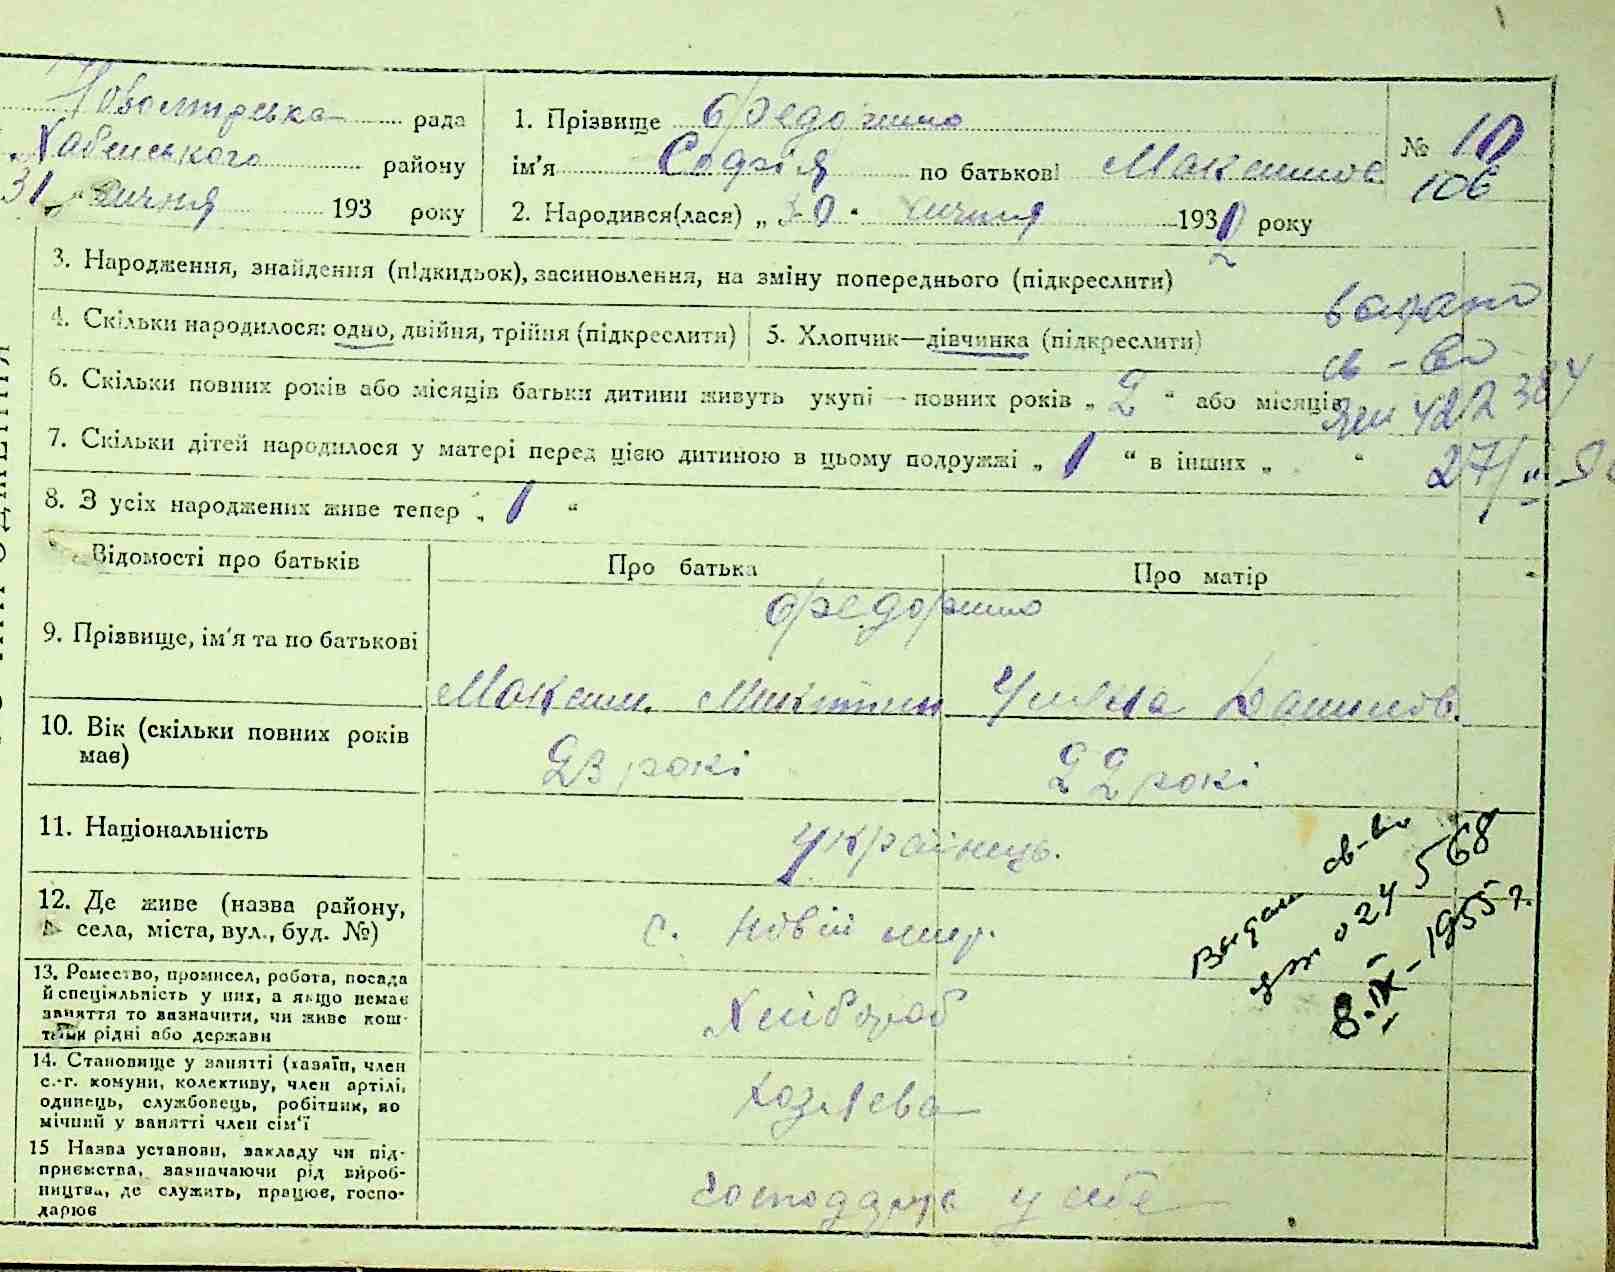 рада
Хабенського району
31 " січня 193 року
1. Прізвище Федоришко
ім'я Софія по батькові Максимов.
2. Народився(лася) „ 30 " січня 193 2 року
№ 10
106
3. Народження, знайдення (підкидьок), засиновлення, на зміну попереднього (підкреслити)
4. Скільки народилося: одно, двійня, трійня (підкреслити)
5. Хлопчик—дівчинка (підкреслити)
6. Скільки повних років або місяців батьки дитини живуть укупі — повних років „ 2 " або місяців
7. Скільки дітей народилося у матері перед цією дитиною в цьому подружжі „ 1 " в інших „ "
8. З усіх народжених живе тепер „ 1 "
св-во
Відомості про батьків
Про батька
Про матір
9. Прізвище, ім'я та по батькові
Максим. Микитин
Уляна Данилов.
10. Вік (скільки повних років
має)
23 рокі
22 рокі
11. Національність
українець.
12. Де живе (назва району,
села, міста, вул., буд. №)
с. Новій мир.
13. Ремество, промисел, робота, посада
й спеціяльність у них, а якщо немає
заняття то вазначити, чи живе кош-
тами рідні або держави
Хлібороб
14. Становище у занятті (хазяїн, член
с.-г. комуни, колективу, член артілі,
одинець, службовець, робітник, по
мічний у занятті член сім'ї
хозяева
15 Назва установи, закладу чи під-
приємства, зазначаючи рід вироб-
ництва, де служить, працює, госпо-
дарює
господарь у себе
св-во
024568
8.IX-1955 г.